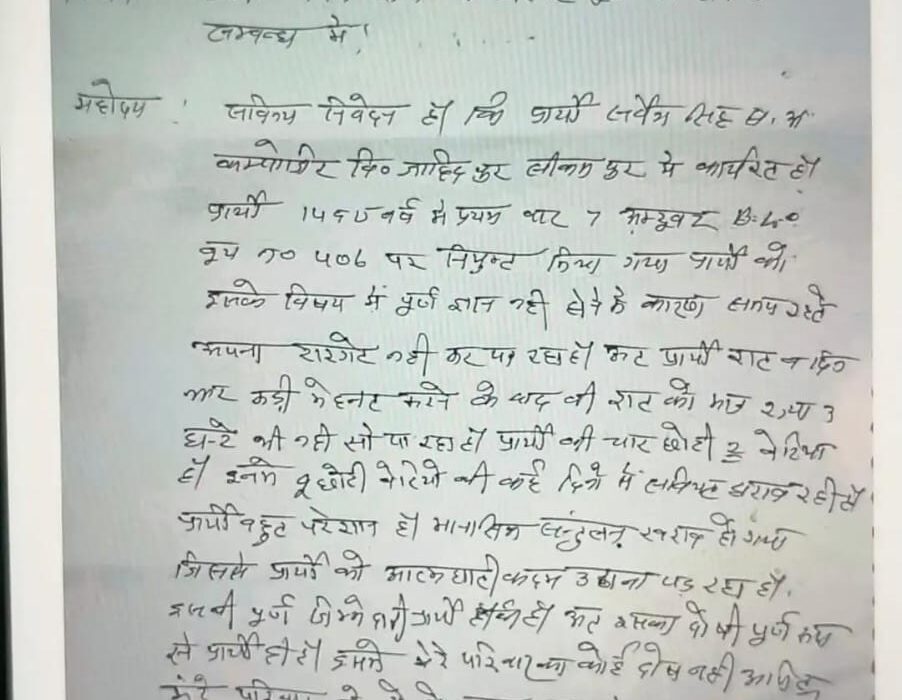 सम्बन्ध में!
महोदय : सविनय निवेदन है कि प्रार्थी सर्वेश सिंह स. अ.
कम्पोजिट वि० जाहिदपुर सीकमपुर में कार्यरत है।
प्रार्थी को इस वर्ष में प्रथम बार 7 अक्टूबर B.L.O
बूथ न० 406 पर नियुक्त किया गया प्रार्थी को
इसके विषय में पूर्ण ज्ञान नहीं होने के कारण समय रहते
अपना टारगेट नहीं कर पा रहा है। अतः प्रार्थी रात व दिन
भर कड़ी मेहनत करने के बाद भी रात को मात्र 2 या 3
घन्टे भी नहीं सो पा रहा है। प्रार्थी की चार छोटी बेटियां
है। इनमें छोटी बेटियो की कई दिनो में तबियत खराब रही है।
प्रार्थी बहुत परेशान है। मानसिक सन्तुलन खराब हो गया
जिससे प्रार्थी को आत्मघाती कदम उठाना पड़ रहा है।
इसकी पूर्ण जिम्मेदारी प्रार्थी की है। अतः इसका दोषी पूर्ण रूप
से प्रार्थी ही है। इसमें मेरे परिवार का कोई दोष नहीं
मेरे परिवार